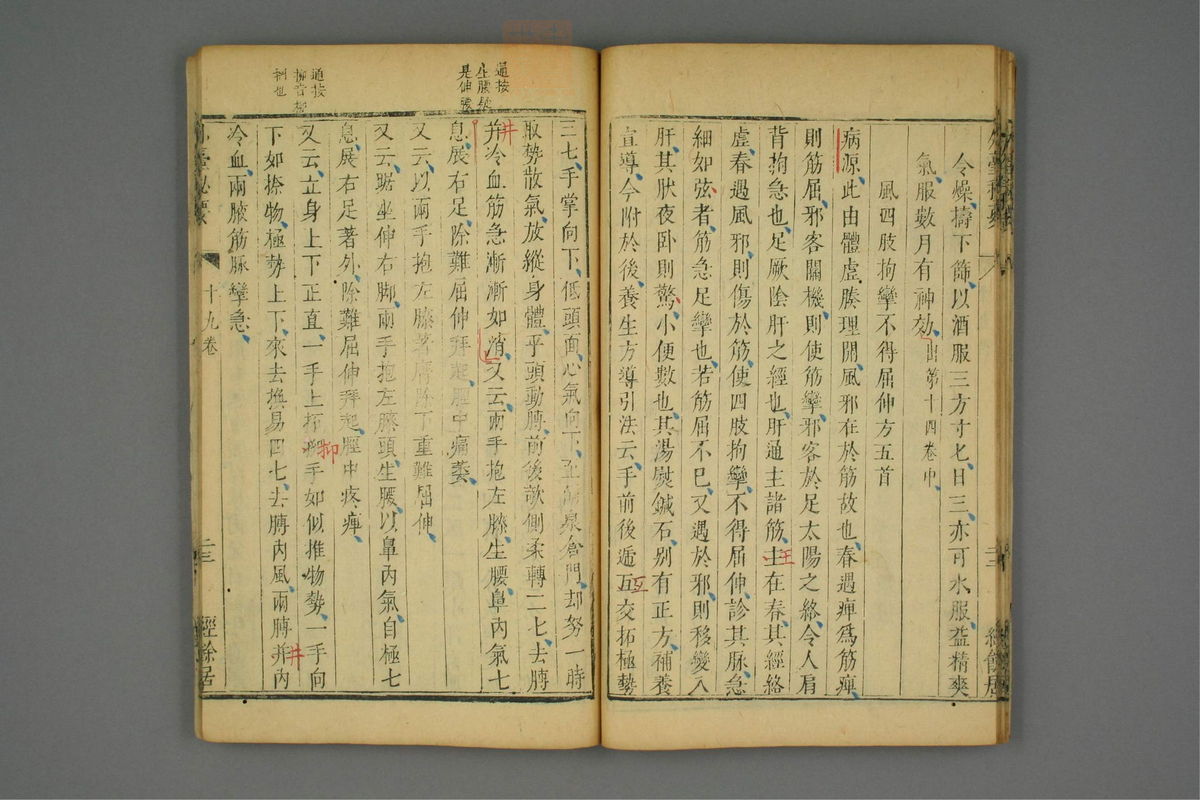 令燥擣下篩以酒服三方寸匕日三亦可水服益精爽
氣服數月有神効出第十四卷中
風四肢拘攣不得屈伸方五首
病源此由體虛腠理開風邪在於筋故也春遇痺爲筋痺
則筋屈邪客關機則使筋攣邪客於足太陽之絡令人肩
背拘急也足厥陰肝之經也肝通主諸筋主在春其經絡
虛春遇風邪則傷於筋使四肢拘攣不得屈伸診其脈急
細如弦者筋急足攣也若筋屈不已又遇於邪則移變入
肝其狀夜卧則驚小便數也其湯熨鍼石别有正方補養
宣導今附於後養生方導引法云手前後遞互交拓極勢
三七手掌向下低頭面心氣向下至涌泉倉門却努一時
取勢散氣放縱身體乎頭動膊前後欹側柔轉二七去膊
井冷血筋急漸漸如消又云兩手抱左膝生腰鼻內氣七
息展右足除難屈伸拜起脛中痛萎
又云以兩手抱右膝著膺除下重難屈伸
又云踞坐伸右脚兩手抱左膝頭生腰以鼻內氣自極七
息展右足著外除難屈伸拜起脛中疼痺
又云立身上下正直一手上拓仰手如似推物勢一手向
下如捺物極勢上下來去換易四七去膊內風兩膊井內
冷血兩腋筋脈攣急
通按
生腰
是伸腰
通按
外臺秘要
十九卷
二三
經餘居
井
抑
井
王
互